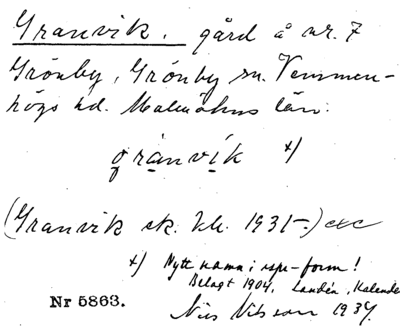 Granvik. gård å nr. 7
Grönby, Grönby sn. Vemmen-
högs hd. Malmöhus län.
grànvík x)
(Granvik sk. hl. 1931-) etc
x) Nytt namn i rspr-form!
Belagt 1904, Landén, Kalender
Nils Nilsson 1934.
Nr 5863.